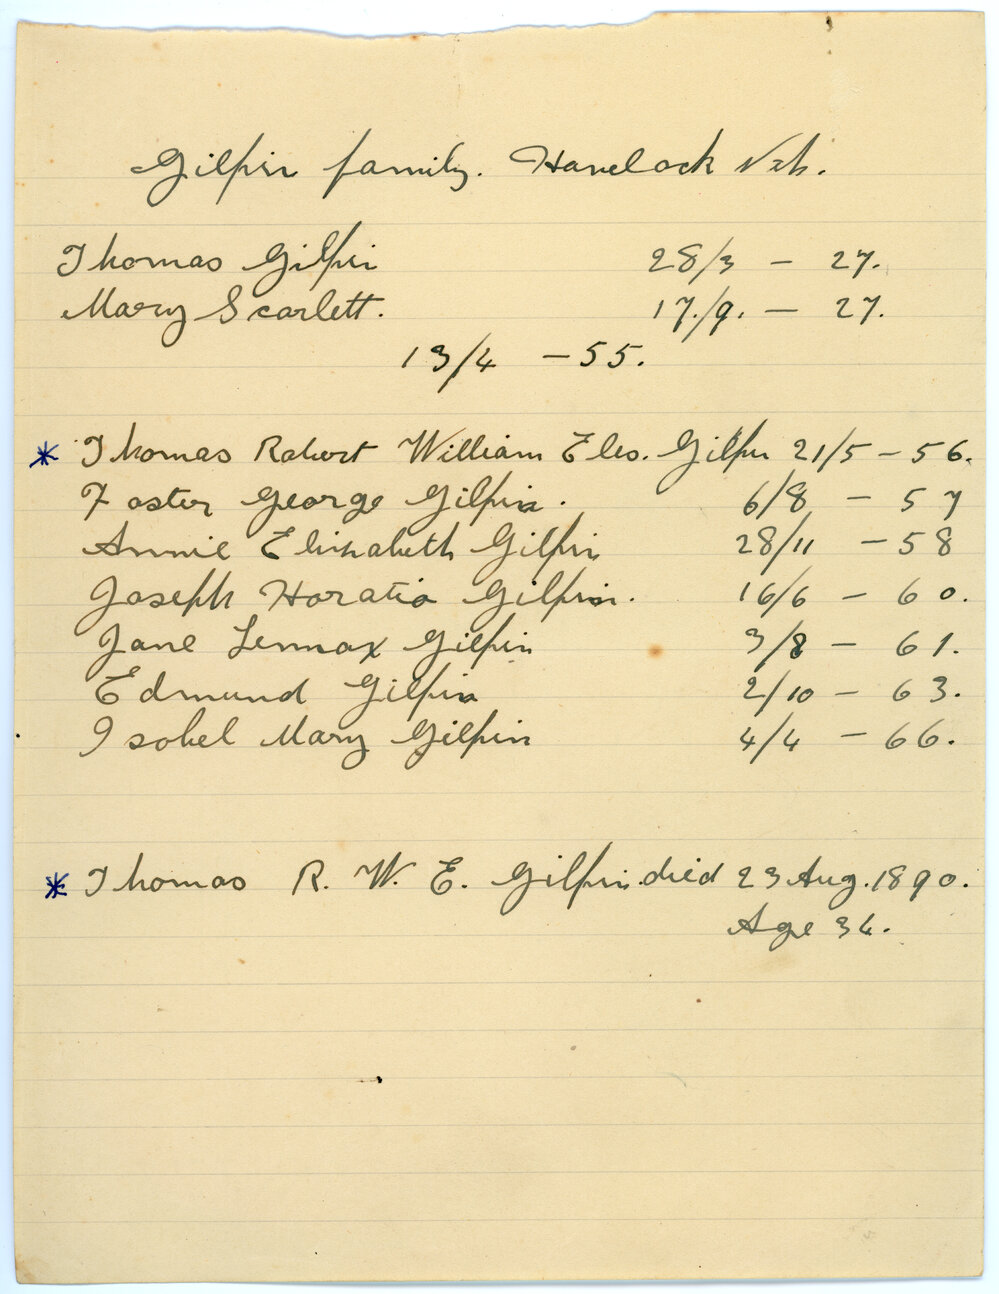 Gilpin family. Havelock Nth.
Thomas Gilpin 28/3 – 27.
Mary Scarlett. 17./9. – 27.
13/4 – 55.
* Thomas Robert William Eles. Gilpin 21/5 – 56.
Foster George Gilpin. 6/8 – 57
Annie Elizabeth Gilpin 28/11 – 58
Joseph Horatio Gilpin. 16/6 – 60.
Jane Lennox Gilpin 3/8 – 61.
Edmund Gilpin 2/10 – 63.
Isobel Mary Gilpin 4/4 – 66.
* Thomas R. W. E. Gilpin. died 23 Aug. 1890.
Age 34.